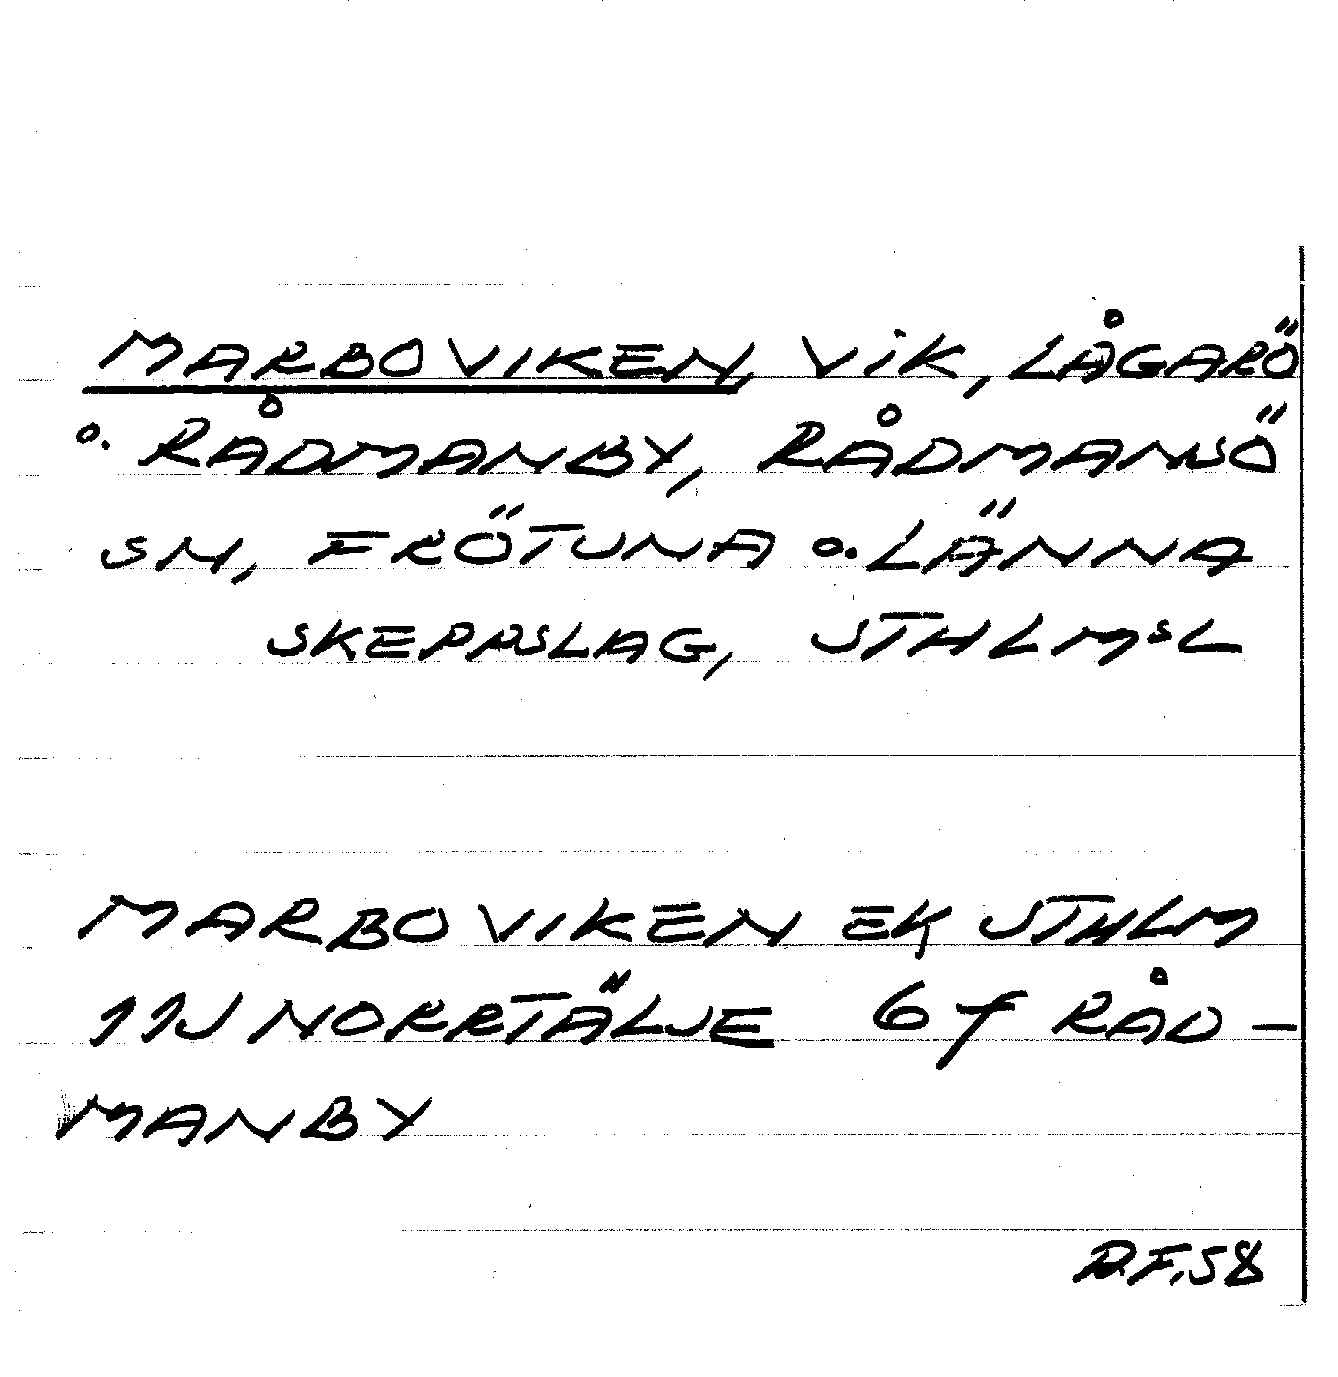 MARBOVIKEN, VIK, LÅGARÖ
o. RÅDMANBY, RÅDMANSÖ
SN, FRÖTUNA o. LÄNNA
SKEPPSLAG, STHLMSL
MARBOVIKEN EK STHLM
11J NORRTÄLJE 6f RÅD-
MANBY
R.F.58